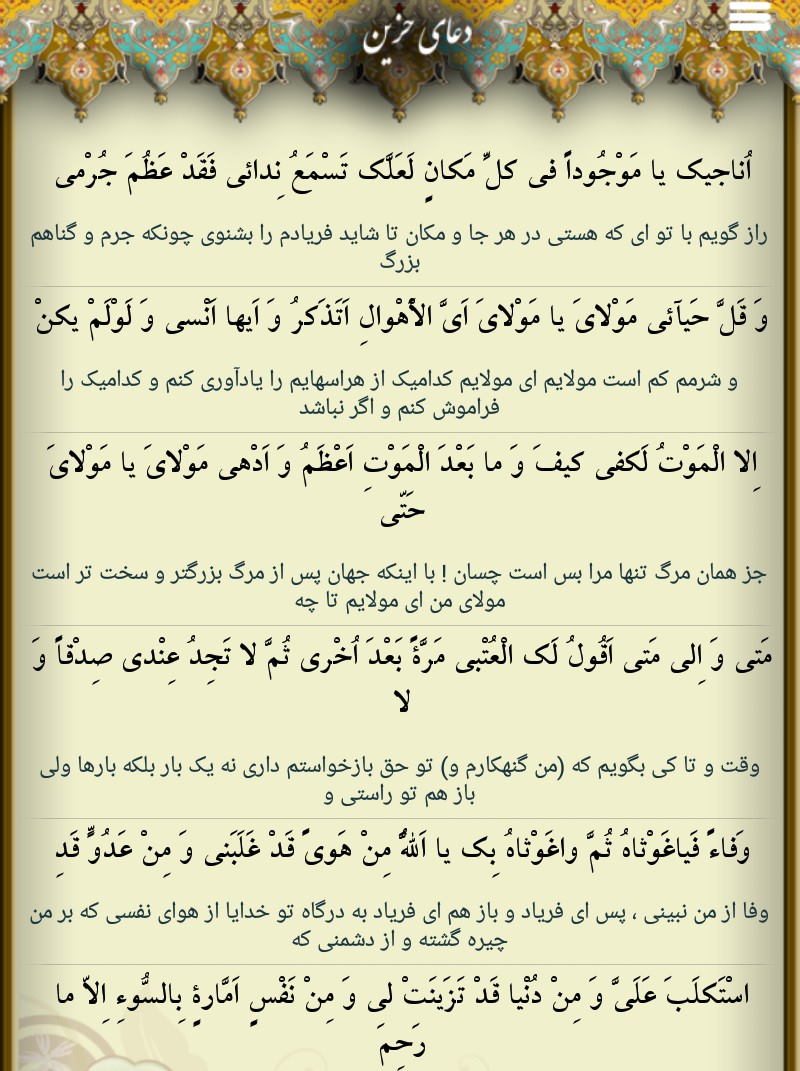 دعای حزین
اُناجیک یا مَوْجُوداً فی کلِّ مَکانٍ لَعَلَّک تَسْمَعُ نِدائی فَقَدْ عَظُمَ جُرْمی
راز گویم با تو ای که هستی در هر جا و مکان تا شاید فریادم را بشنوی چونکه جرم و گناهم
بزرگ
وَ قَلَّ حَیآئی مَوْلایَ یا مَوْلایَ اَیَّ الأَهْوالِ اَتَذَکرُ وَ اَیها اَنْسی وَ لَوْلَمْ یکنْ
و شرمم کم است مولایم ای مولایم کدامیک از هراسهایم را یادآوری کنم و کدامیک را
فراموش کنم و اگر نباشد
اِلا الْمَوْتُ لَکفی کیفَ وَ ما بَعْدَ الْمَوْتِ اَعْظَمُ وَ اَدْهی مَوْلایَ یا مَوْلایَ
حَتّی
جز همان مرگ تنها مرا بس است چسان ! با اینکه جهان پس از مرگ بزرگتر و سخت تر است
مولای من ای مولایم تا چه
مَتی وَ اِلی مَتی اَقُولُ لَک الْعُتْبی مَرَّةً بَعْدَ اُخْری ثُمَّ لا تَجِدُ عِنْدی صِدْقاً وَ
لا
وقت و تا کی بگویم که (من گنهکارم و) تو حق بازخواستم داری نه یک بار بلکه بارها ولی
باز هم تو راستی و
وَفاءً فَیاغَوْثاهُ ثُمَّ واغَوْثاهُ بِک یا اَللهُ مِنْ هَویً قَدْ غَلَبَنی وَ مِنْ عَدُوٍّ قَدِ
وفا از من نبینی ، پس ای فریاد و باز هم ای فریاد به درگاه تو خدایا از هوای نفسی که بر من
چیره گشته و از دشمنی که
اسْتَکلَبَ عَلَیَّ وَ مِنْ دُنْیا قَدْ تَزَینَتْ لی وَ مِنْ نَفْسٍ اَمّارةٍ بِالسُّوءِ اِلاّ ما
رَحِمَ